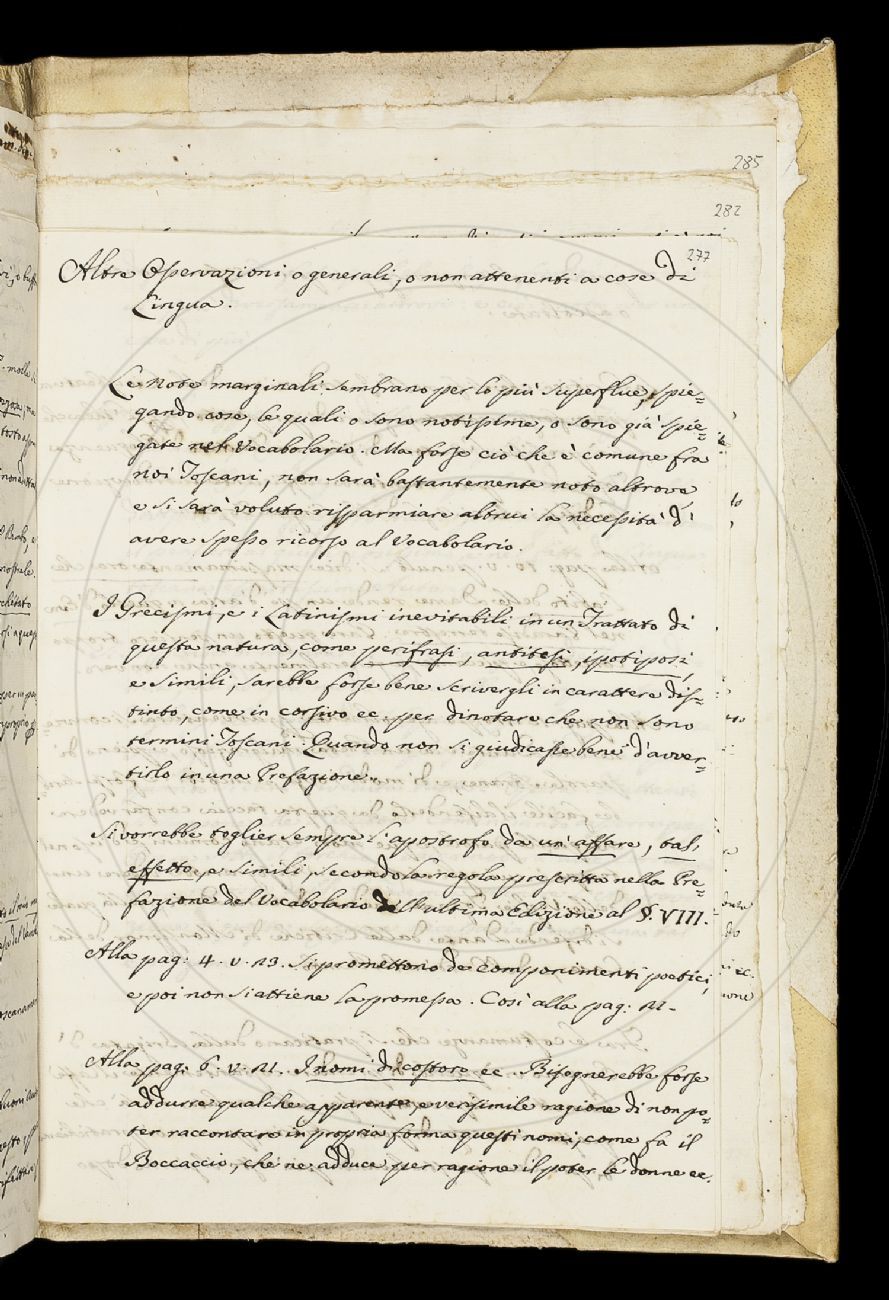 285
282
277
Altre Osservazioni o generali, o non attenenti a cose di
Lingua.
Le Note marginali sembrano per lo più superflue, spie=
gando cose, le quali o sono notissime, o sono già spie=
gate nel Vocabolario. Ma forse ciò che è comune fra
noi Toscani, non sarà bastantemente noto altrove
e si sarà voluto risparmiare altrui la necessità d'
avere spesso ricorso al Vocabolario.
I Grecismi, e i Latinismi inevitabili in un Trattato di
questa natura, come perifrasi, antitesi, ipotiposi,
e simili, sarebbe forse bene scrivergli in carattere dis=
tinto, come in corsivo ec. per dinotare che non sono
termini Toscani. Quando non si giudicasse bene d'avver=
tirlo in una Prefazione.
Si vorrebbe toglier sempre l'apostrofo da un' affare, tal'
effetto, e simili, secondo la regola prescritta nella Pre=
fazione del Vocabolario dell'ultima Edizione al §. VIII.
Alla pag: 4. v. 23. si promettono de componimenti poetici,
e poi non si attiene la promessa. Così alla pag: 21.
Alla pag: 6. v. 21. I nomi di costoro ec. Bisognerebbe forse
addurre qualche apparente, e verisimile ragione di non po=
ter raccontare in propria forma questi nomi, come fa il
Boccaccio, che ne adduce per ragione il poter le donne ec.